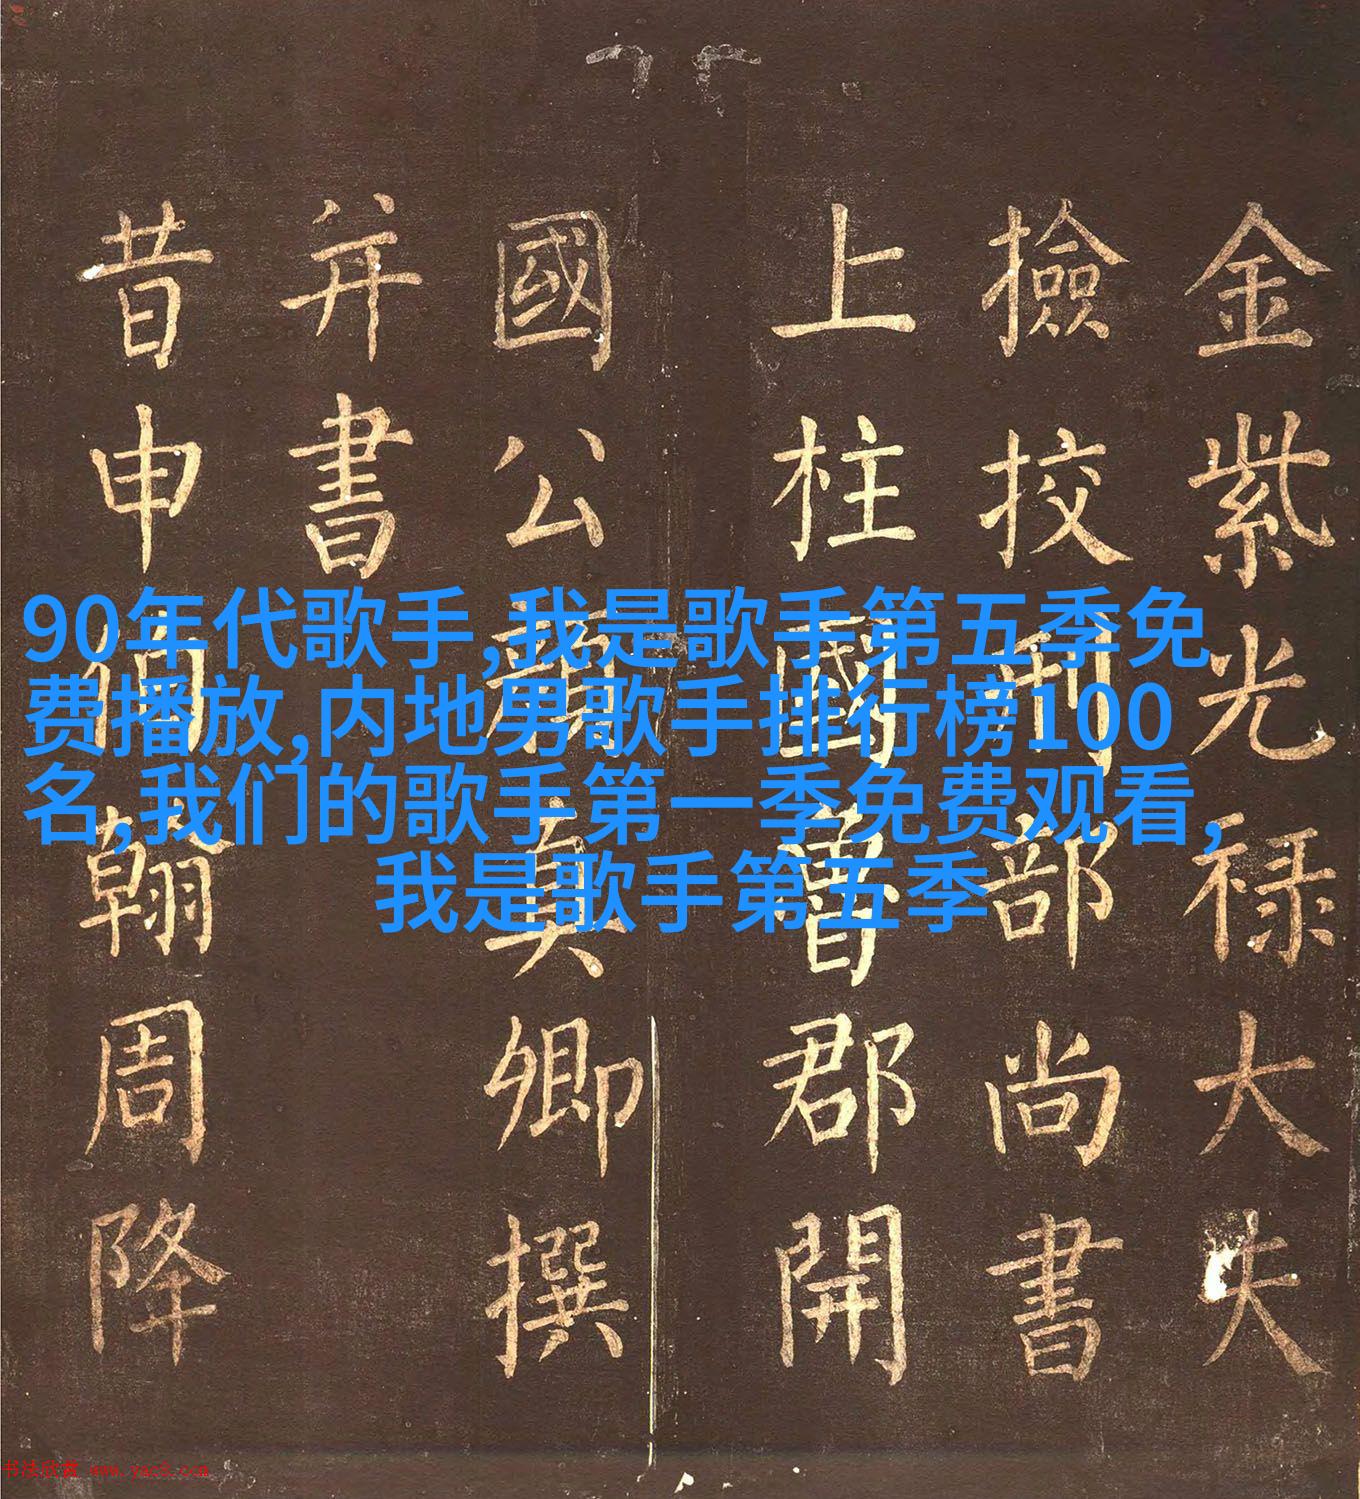 金紫光禄大夫
撿挍刑部尚書
上柱國魯郡開
國公顔真卿撰
并書
昔申伯翰周降
90年代歌手,我是歌手第五季免
费播放,内地男歌手排行榜100
名,我们的歌手第一季免费观看,
我是歌手第五季
书法欣赏 www.yac8.com